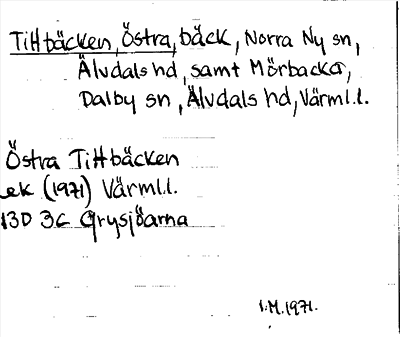 Tittbäcken, Östra, bäck, Norra Ny sn,
Älvdals hd, samt Mörbacka,
Dalby sn, Älvdals hd, Värml.l.
Östra Tittbäcken
ek (1971) Värml.l.
13D 3c Grysjöarna
I.M. 1971.